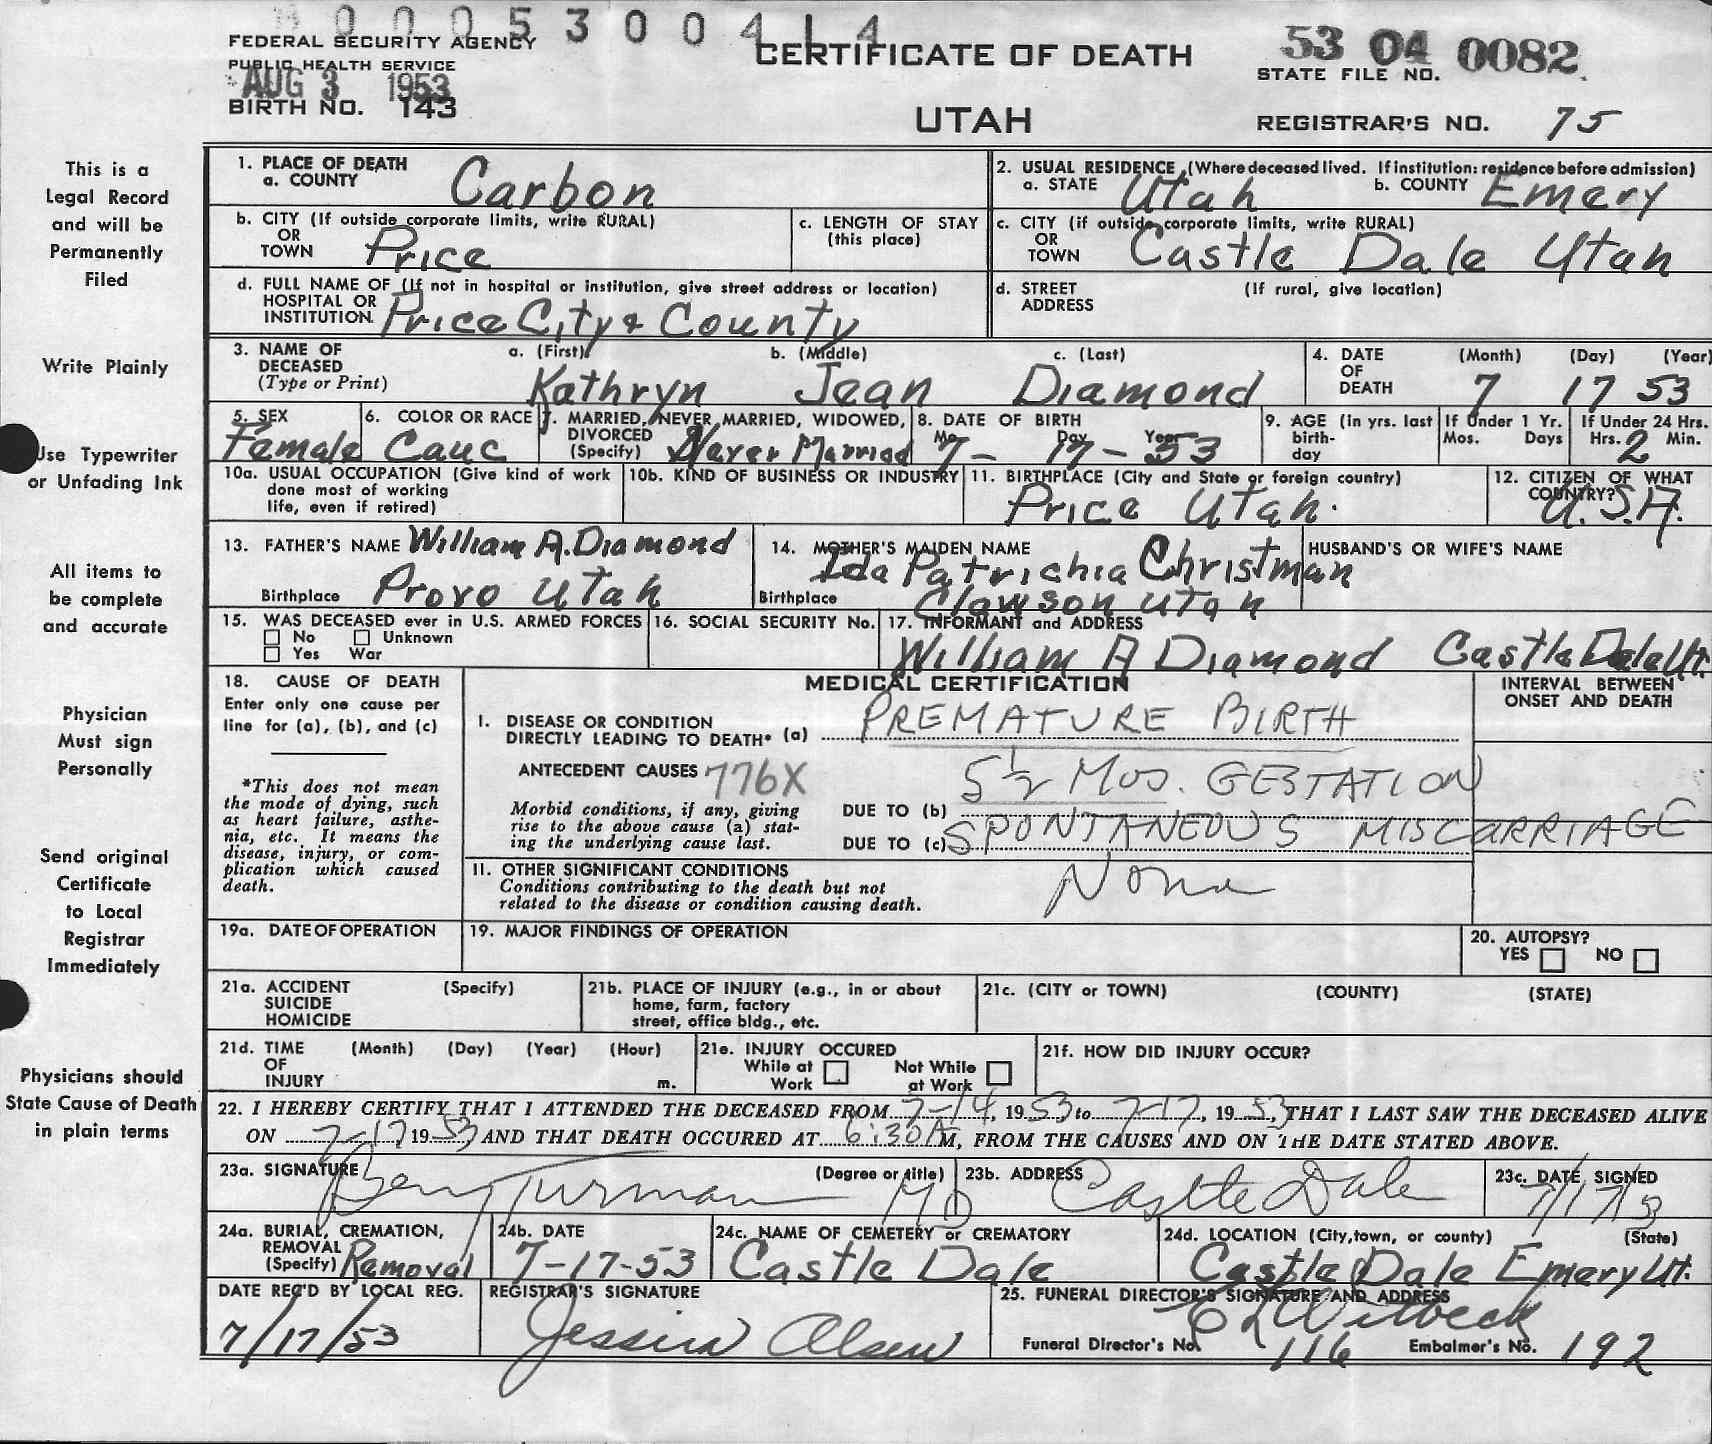 0005300414
FEDERAL SECURITY AGENCY
PUBLIC HEALTH SERVICE
AUG 3 1953
BIRTH NO. 143
CERTIFICATE OF DEATH
UTAH
53 04 0082
STATE FILE NO.
REGISTRAR'S NO. 75
This is a
Legal Record
and will be
Permanently
Filed
Write Plainly
Use Typewriter
or Unfading Ink
All items to
be complete
and accurate
Physician
Must sign
Personally
Send original
Certificate
to Local
Registrar
Immediately
Physicians should
State Cause of Death
in plain terms
1. PLACE OF DEATH
a. COUNTY Carbon
2. USUAL RESIDENCE (Where deceased lived. If institution: residence before admission)
a. STATE Utah b. COUNTY Emery
b. CITY (If outside corporate limits, write RURAL)
OR
TOWN Price
c. LENGTH OF STAY
(this place)
c. CITY (if outside corporate limits, write RURAL)
OR
TOWN Castle Dale Utah
d. FULL NAME OF (If not in hospital or institution, give street address or location)
HOSPITAL OR
INSTITUTION Price City & County
d. STREET (If rural, give location)
ADDRESS
3. NAME OF
DECEASED
(Type or Print)
a. (First) b. (Middle) c. (Last)
Kathryn Jean Diamond
4. DATE
OF
DEATH
(Month) (Day) (Year)
7 17 53
5. SEX
Female
6. COLOR OR RACE
Cauc
7. MARRIED, NEVER MARRIED, WIDOWED,
DIVORCED
(Specify) Never Married
8. DATE OF BIRTH
Mo. Day Year
7-17-53
9. AGE (in yrs. last
birth-
day
If Under 1 Yr.
Mos. Days
If Under 24 Hrs.
Hrs. 2 Min.
10a. USUAL OCCUPATION (Give kind of work
done most of working
life, even if retired)
10b. KIND OF BUSINESS OR INDUSTRY
11. BIRTHPLACE (City and State or foreign country)
Price Utah.
12. CITIZEN OF WHAT
COUNTRY?
U.S.A.
13. FATHER'S NAME William A. Diamond
Birthplace Provo Utah
14. MOTHER'S MAIDEN NAME
Ida Patrichia Christman
Birthplace Clawson Utah
HUSBAND'S OR WIFE'S NAME
15. WAS DECEASED ever in U.S. ARMED FORCES
No Unknown
Yes War
16. SOCIAL SECURITY No.
17. INFORMANT and ADDRESS
William A Diamond Castle Dale Ut.
18. CAUSE OF DEATH
Enter only one cause per
line for (a), (b), and (c)
*This does not mean
the mode of dying, such
as heart failure, asthe-
nia, etc. It means the
disease, injury, or com-
plication which caused
death.
MEDICAL CERTIFICATION
INTERVAL BETWEEN
ONSET AND DEATH
I. DISEASE OR CONDITION
DIRECTLY LEADING TO DEATH* (a) PREMATURE BIRTH
ANTECEDENT CAUSES 776X
Morbid conditions, if any, giving
rise to the above cause (a) stat-
ing the underlying cause last.
DUE TO (b) 5½ MOS. GESTATION
DUE TO (c) SPONTANEOUS MISCARRIAGE
II. OTHER SIGNIFICANT CONDITIONS
Conditions contributing to the death but not
related to the disease or condition causing death.
None
19a. DATE OF OPERATION
19. MAJOR FINDINGS OF OPERATION
20. AUTOPSY?
YES NO
21a. ACCIDENT (Specify)
SUICIDE
HOMICIDE
21b. PLACE OF INJURY (e.g., in or about
home, farm, factory
street, office bldg., etc.
21c. (CITY or TOWN) (COUNTY) (STATE)
21d. TIME (Month) (Day) (Year) (Hour)
OF
INJURY m.
21e. INJURY OCCURED
While at Work
Not While at Work
21f. HOW DID INJURY OCCUR?
22. I HEREBY CERTIFY THAT I ATTENDED THE DECEASED FROM 7-14, 1953 to 7-17, 1953 THAT I LAST SAW THE DECEASED ALIVE
ON 7-17 1953 AND THAT DEATH OCCURED AT 6:30 A M, FROM THE CAUSES AND ON THE DATE STATED ABOVE.
23a. SIGNATURE (Degree or title)
Turman MD
23b. ADDRESS
Castle Dale
23c. DATE SIGNED
7/17/53
24a. BURIAL, CREMATION,
REMOVAL
(Specify) Removal
24b. DATE
7-17-53
24c. NAME OF CEMETERY or CREMATORY
Castle Dale
24d. LOCATION (City, town, or county) (State)
Castle Dale Emery Ut.
DATE REC'D BY LOCAL REG.
7/17/53
REGISTRAR'S SIGNATURE
Olsen
25. FUNERAL DIRECTOR'S SIGNATURE AND ADDRESS
Funeral Director's No. 116 Embalmer's No. 192